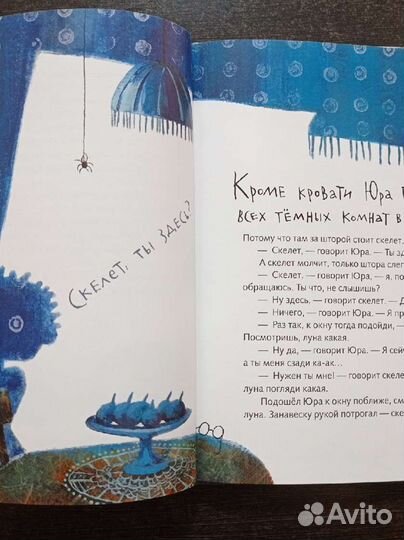 Скелет, ты здесь?
Кроме кровати Юра
всех тёмных комнат в
Потому что там за шторой стоит скелет.
— Скелет, — говорит Юра. — Ты
А скелет молчит, только штора
— Скелет, — говорит Юра, — я,
обращаюсь. Ты что, не слышишь?
— Ну здесь, — говорит скелет. —
— Ничего, — говорит Юра. — Я
— Раз так, к окну тогда подойди, —
Посмотришь, луна какая.
— Ну да, — говорит Юра. — Я
а ты меня сзади ка-ак...
— Нужен ты мне! — говорит
луна погляди какая.
Подошёл Юра к окну поближе,
луна. Занавеску рукой потрогал —
Avito